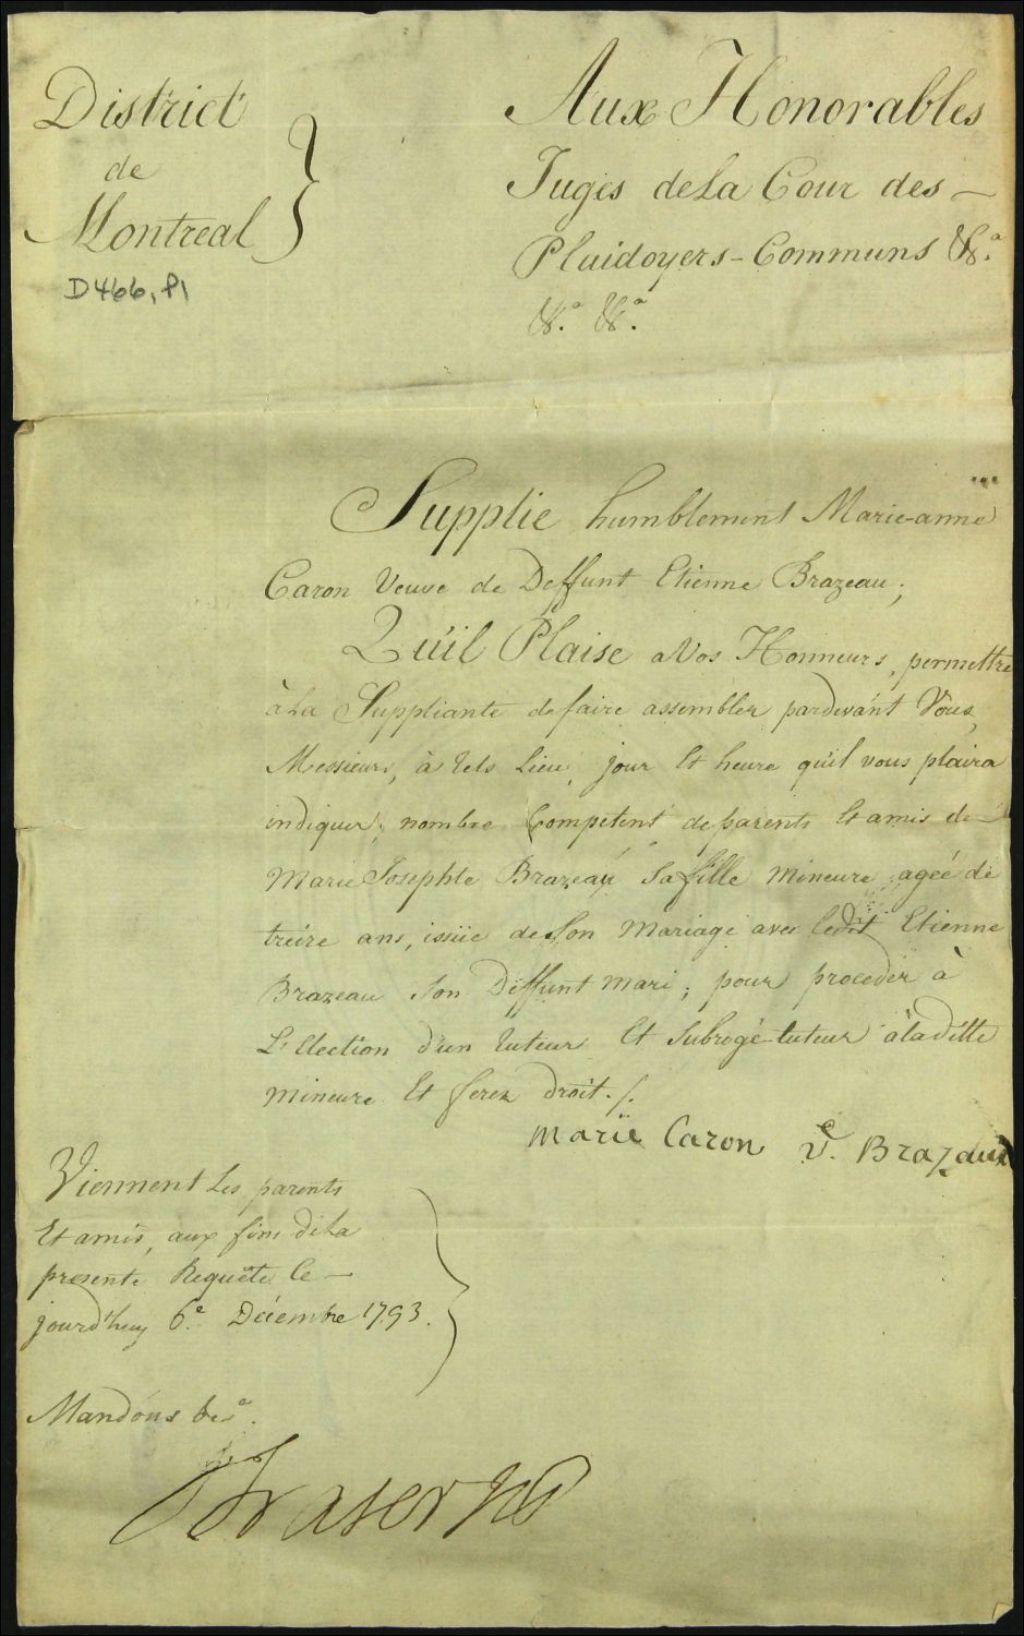 District
de
Montreal
D466, P1
Aux Honorables
Juges de La Cour des —
Plaidoyers - Communs &c.a
&c.a &c.a
Supplie humblement Marie-anne
Caron Veuve de Deffunt Etienne Brazeau ;
Qu'il Plaise a Vos Honneurs, permettre
à La Suppliante de faire assembler pardevant Vous,
Messieurs, à tels Lieu, jour Et heure qu'il vous plaira
indiquer, nombre Competent de parents Et amis de
Marie Josephte Brazeau Sa fille Mineure agée de
treize ans, issüe de Son Mariage avec Ledit Etienne
Brazeau Son Deffunt mari ; pour proceder à
L'Election d'un tuteur Et Subrogé-tuteur à la ditte
mineure Et ferez droit ./.
Marie Caron Ve. Brazaux
Viennent Les parents
Et amis, aux fins de La
presente Requête Ce —
jourd'huy 6e. Décembre 1793.
Mandons &c.a
Fraser